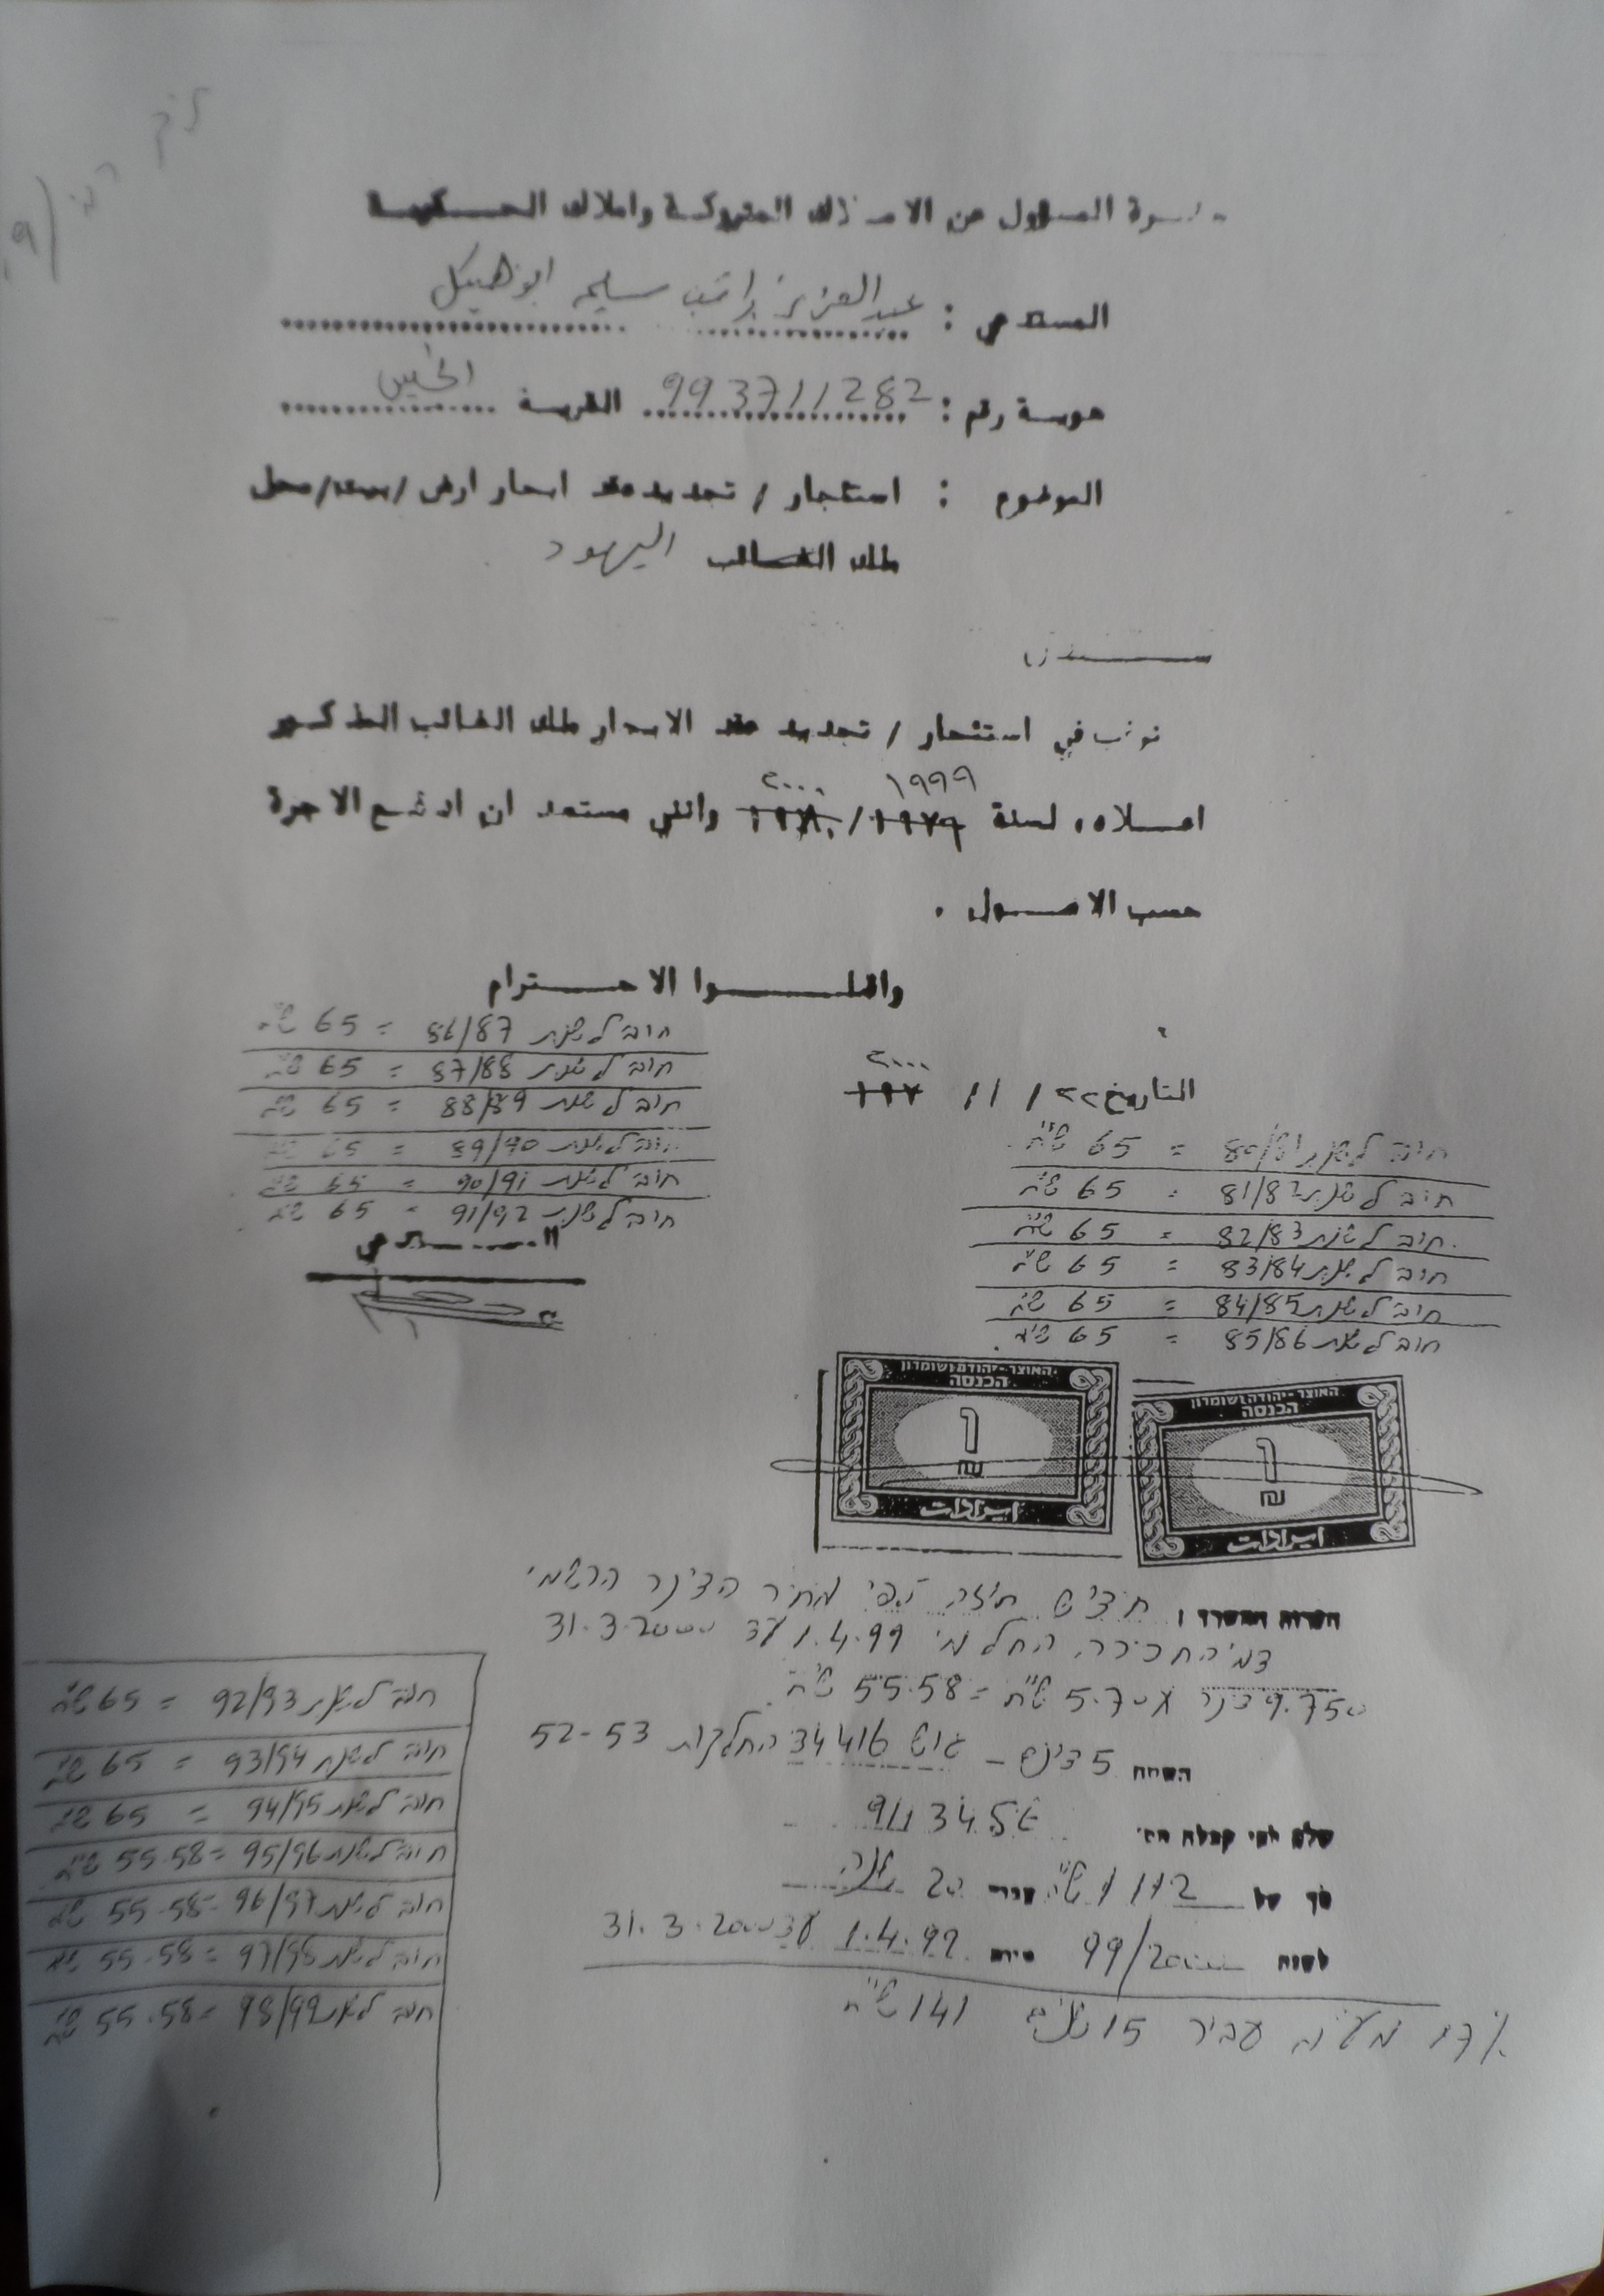 حضرة المسؤول عن الاملاك المتروكة واملاك الحكومة
المستدعي : عبد العزيز راتب سليم ابو هيكل
هوية رقم : 993711282 القرية الخليل
الموضوع : استئجار / تجديد عقد ايجار ارض / بيت / محل
ملك الغائب اليهود
نرغب في استئجار / تجديد عقد الايجار ملك الغائب المذكور
١٩٩٩ ٢٠٠٠
اعلاه لسنة ١٩٧٩/ ١٩٨٠ وانني مستعد ان ادفع الاجرة
حسب الاصول .
واقبلوا الاحترام
חוב לשנת 86/87 = 65 ש"ח
חוב לשנת 87/88 = 65 ש"ח
חוב לשנת 88/89 = 65 ש"ח
חוב לשנת 89/90 = 65 ש"ח
חוב לשנת 90/91 = 65 ש"ח
חוב לשנת 91/92 = 65 ש"ח
المستدعي
٢٠٠٠
التاريخ ٢٢ / ١١ / ١٩٧
חוב לשנת 80/81 = 65 ש"ח
חוב לשנת 81/82 = 65 ש"ח
חוב לשנת 82/83 = 65 ש"ח
חוב לשנת 83/84 = 65 ש"ח
חוב לשנת 84/85 = 65 ש"ח
חוב לשנת 85/86 = 65 ש"ח
האוצר-יהודה ושומרון
הכנסה
1
₪
ايرادات
האוצר-יהודה ושומרון
הכנסה
1
₪
ايرادات
הערות המשרד : חדיש חוזה לפי מחיר הדינר הרשמי
דמי החכירה החל מ 1.4.99 עד 31.3.2000
9.750 דינר X 5.70 ש"ח = 55.58 ש"ח
השטח 5 דונם - גוש 34416 החלקות 52-53
שלם לפי קבלה מס' 9113456
סך של 1112 ש"ח עבור 20 שנה
לשנת 99/2000 מיום 1.4.99 עד 31.3.2000
17% מע"מ עבור 15 שנים 141 ש"ח
חוב לשנת 92/93 = 65 ש"ח
חוב לשנת 93/94 = 65 ש"ח
חוב לשנת 94/95 = 65 ש"ח
חוב לשנת 95/96 = 55.58 ש"ח
חוב לשנת 96/97 = 55.58 ש"ח
חוב לשנת 97/98 = 55.58 ש"ח
חוב לשנת 98/99 = 55.58 ש"ח